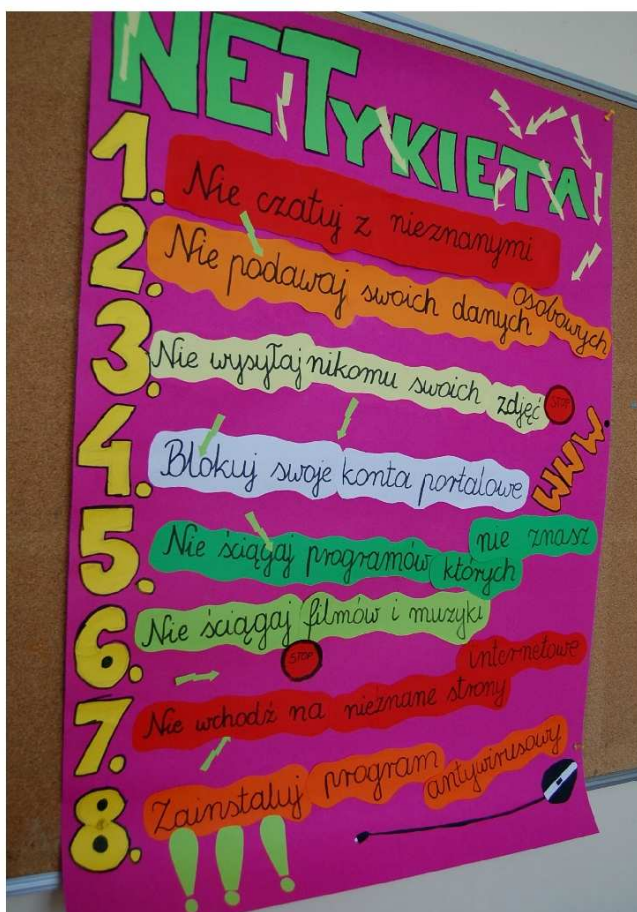 NETYKIETA
1. Nie czatuj z nieznanymi
2. Nie podawaj swoich danych osobowych
3. Nie wysyłaj nikomu swoich zdjęć STOP
WWW
4. Blokuj swoje konta portalowe
5. Nie ściągaj programów których nie znasz
6. Nie ściągaj filmów i muzyki
STOP
7. Nie wchodź na nieznane strony internetowe
8. Zainstaluj program antywirusowy
!!!